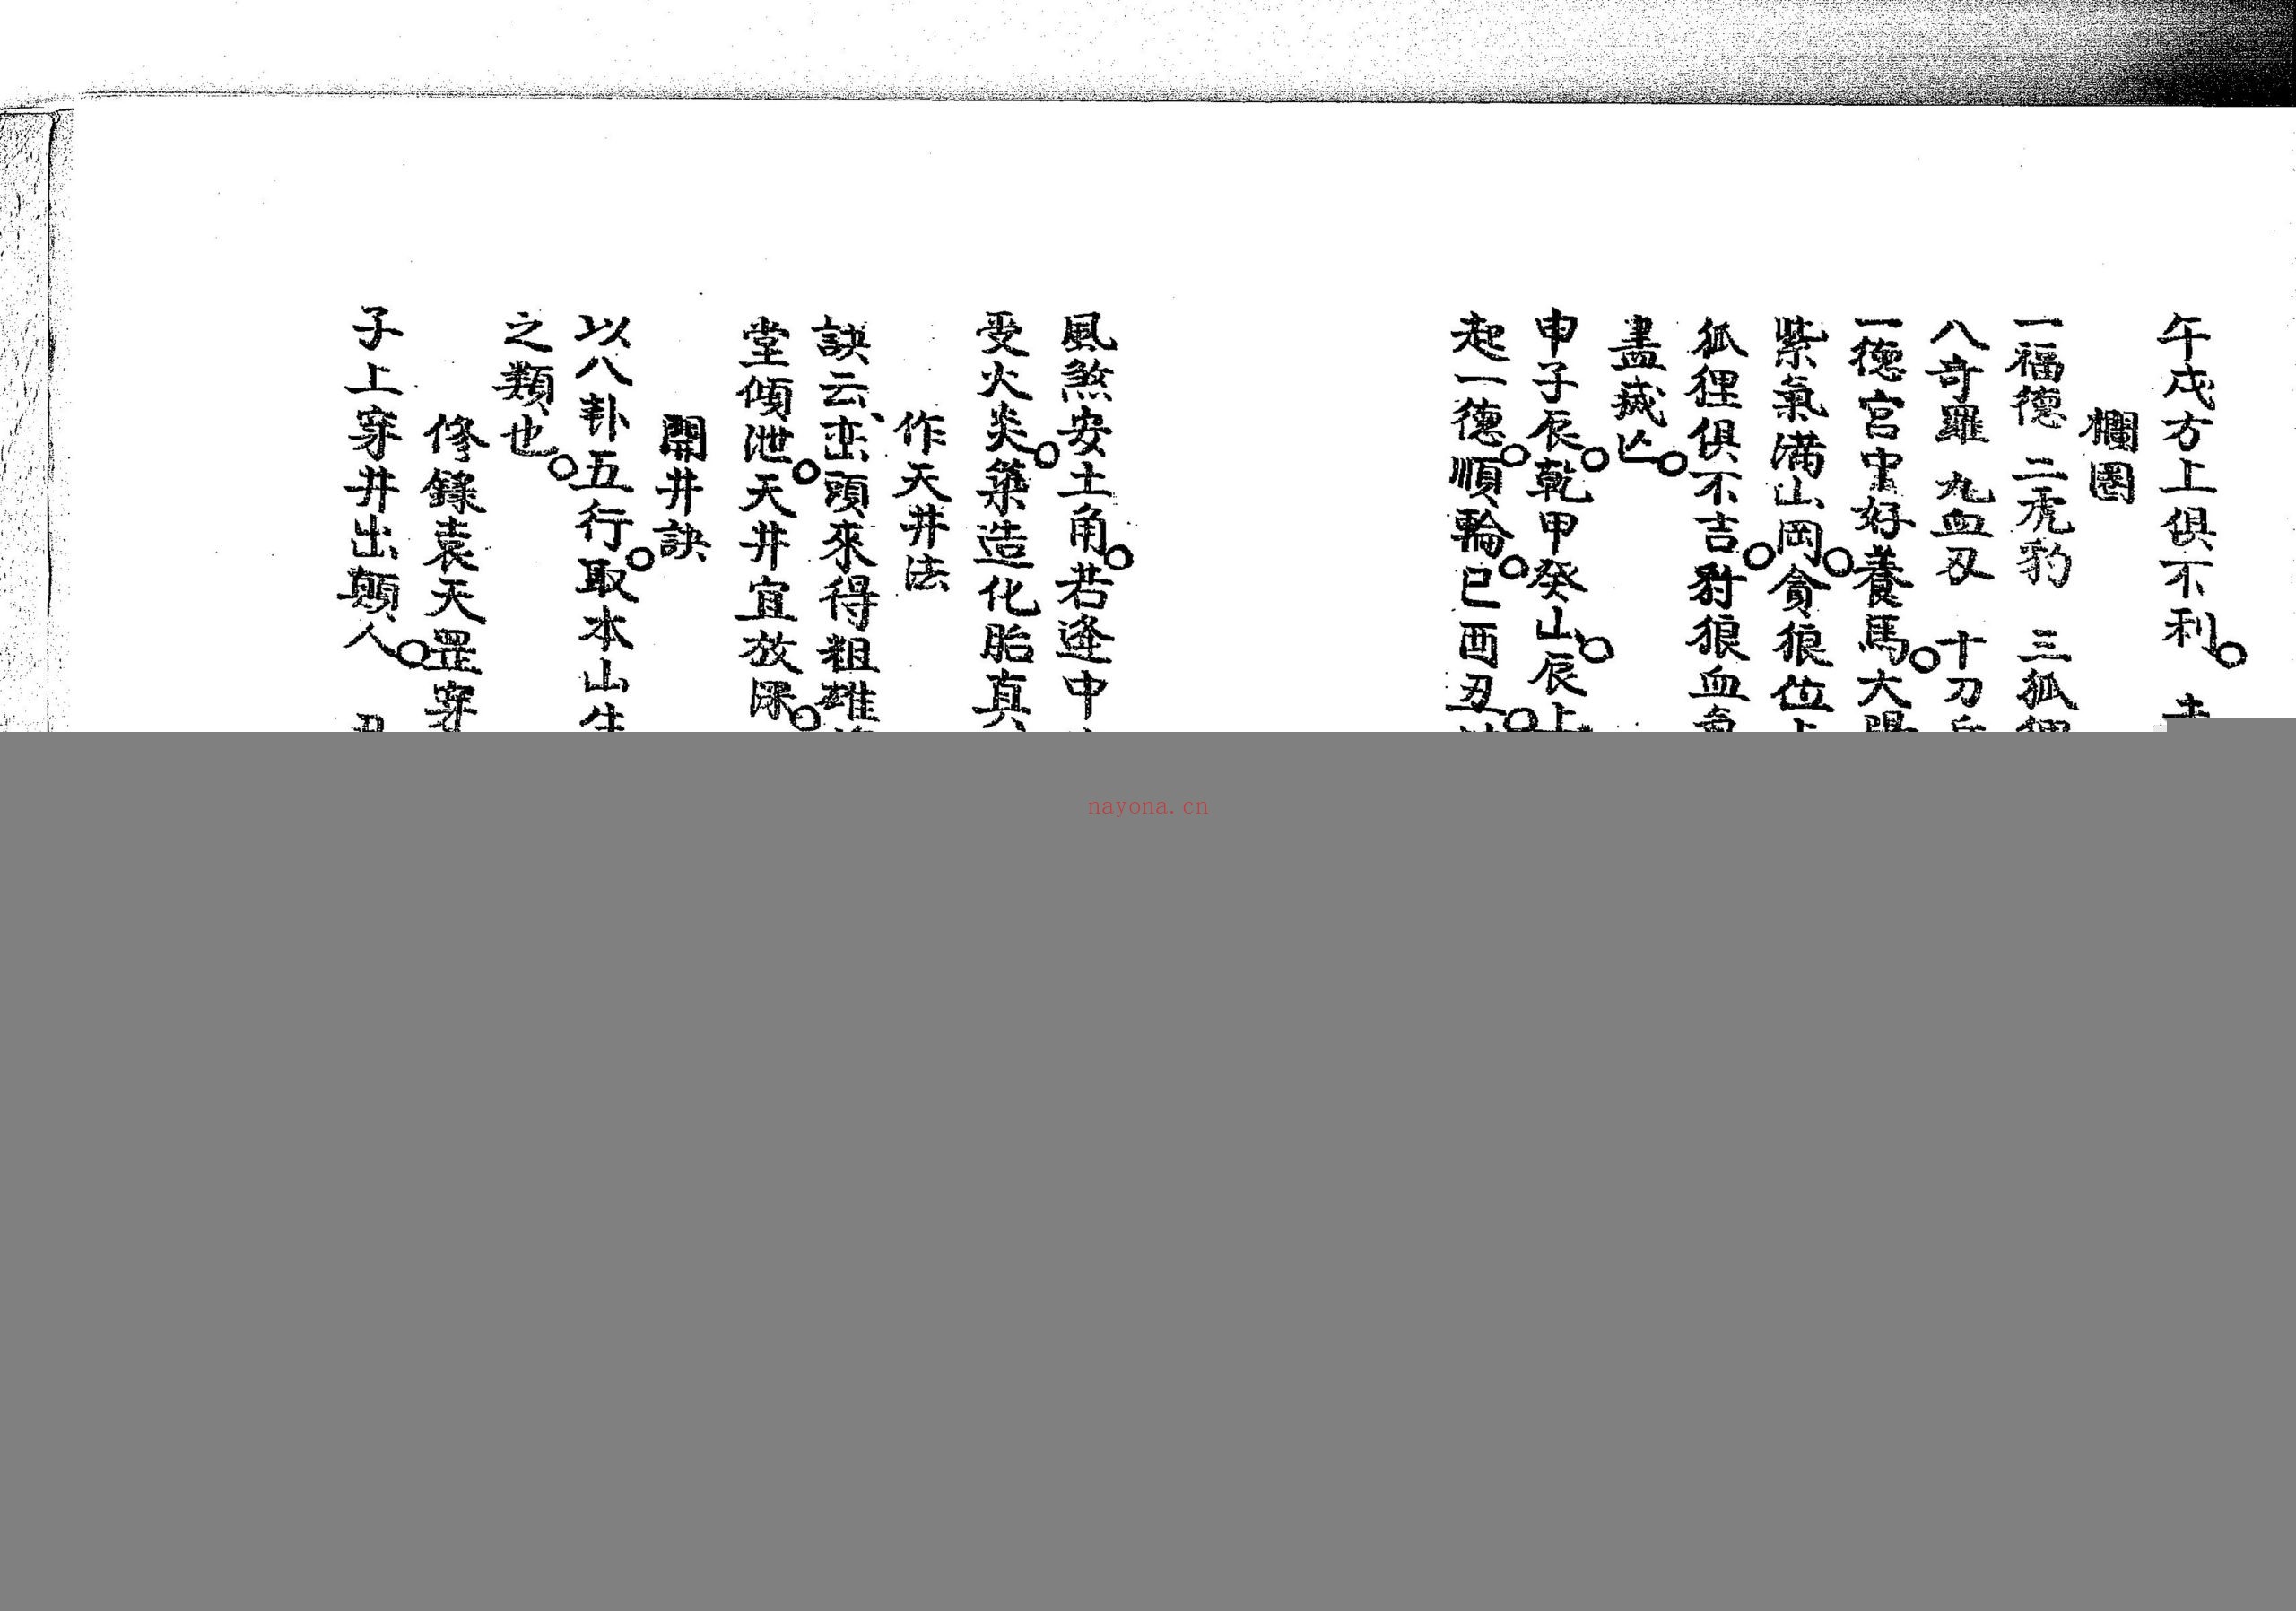 午戌方上俱不利○
欄圈
一福德 二虎豹 三狐狸
八奇羅 九血刃 十刀
一德宮中好養馬○大陽
紫氣滿山岡○貪狼位上
狐狸俱不吉○豺狼血
盡滅亾○
申子辰○乾甲癸山○辰上
起一德○順輪○巳酉丑○
風煞安土角○若逢中
受火炎○築造化胎真
作天井法
訣云巒頭來得粗雄
堂傾泄○天井宜放深○
開井訣
以八卦五行○取本山生
之類也○
修錄袁天罡穿
子上穿井出顛人○ 丑
nayona.cn